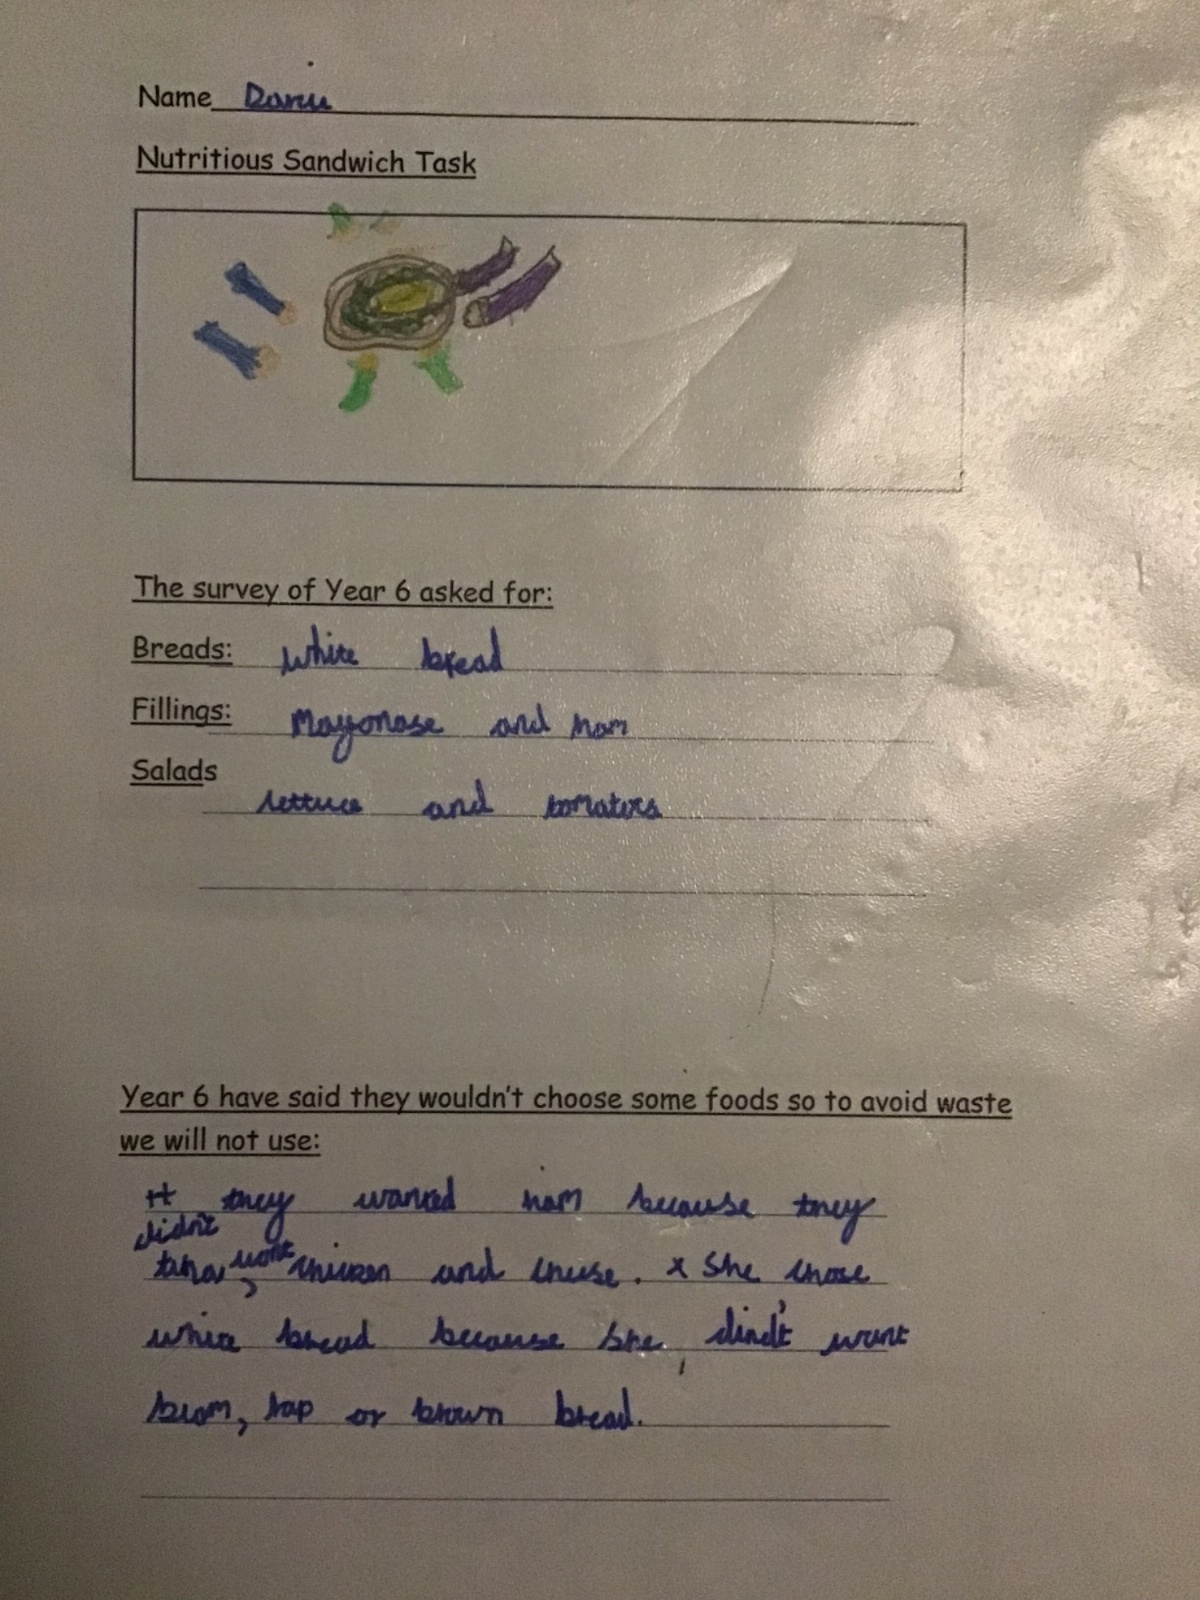 Name
Nutritious Sandwich Task
The survey of Year 6 asked for:
Breads: white bread
Fillings: Mayonase and ham
Salads
lettuce and tomatoes
Year 6 have said they wouldn't choose some foods so to avoid waste
we will not use:
they wanted ham because they
didn't
want chicken and chuse. x She chose
white bread because she dind't want
or brown bread.